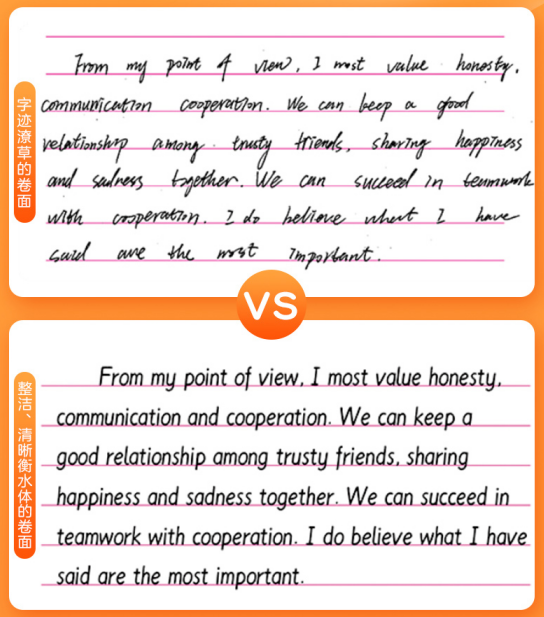 字迹潦草的卷面
From my point of view, I most value honesty,
communication cooperation. We can keep a good
relationship among trusty friends, sharing happiness
and sadness together. We can succeed in teamwork
with cooperation. I do believe what I have
said are the most important.
VS
整洁、清晰衡水体的卷面
From my point of view, I most value honesty,
communication and cooperation. We can keep a
good relationship among trusty friends, sharing
happiness and sadness together. We can succeed in
teamwork with cooperation. I do believe what I have
said are the most important.